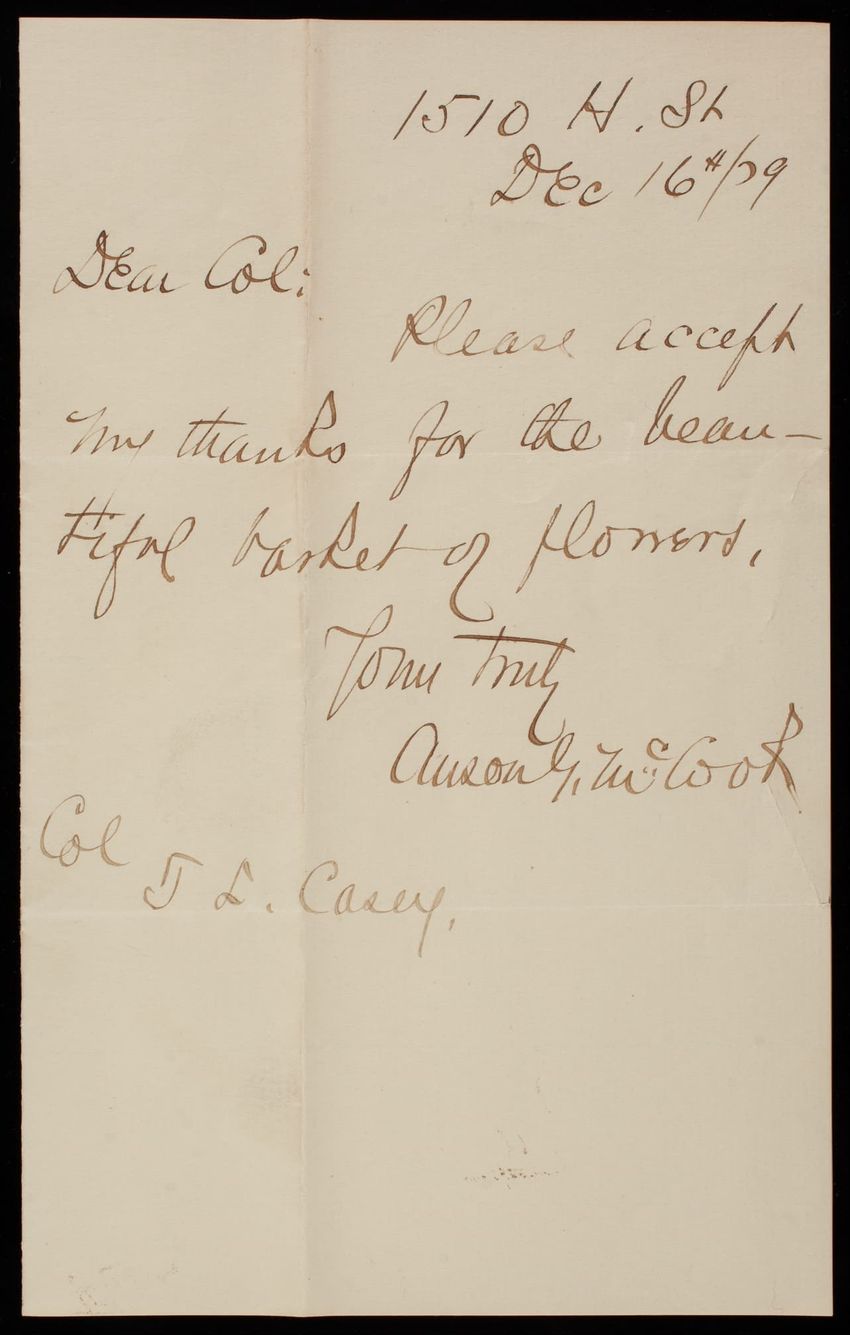 1510 H. St
Dec 16th/79
Dear Col:
Please accept
my thanks for the beau-
tiful basket of flowers.
Your Truly
Anson G. McCook
Col
T L. Casey.